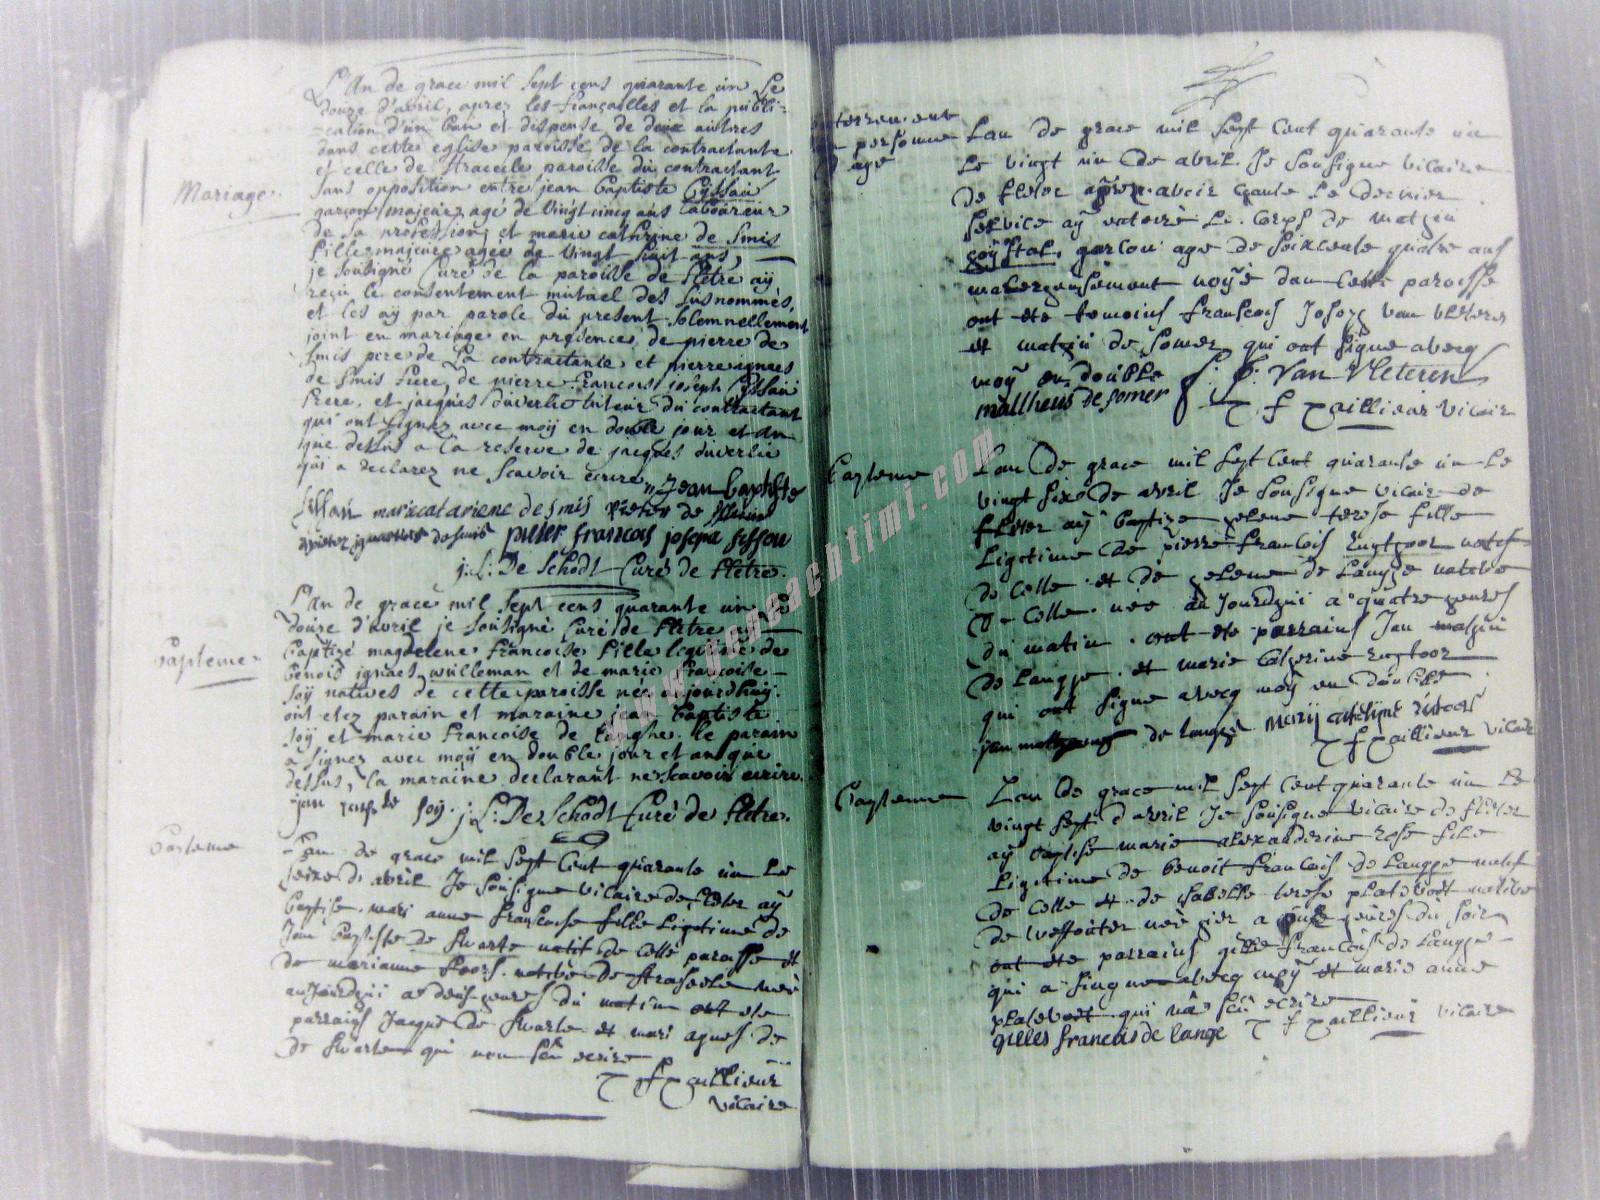 L'An de grace mil sept cens quarante un le
douze d'avril, aprez les fiançailles et la publi-
-cation d'un ban et dispense de deux autres
dans cette eglise paroisse de la contractante
et celle de Straccele paroisse du contractant
sans opposition entre jean baptiste Cyssau
Mariage
garçon majeur agé de vingt cinq ans laboureur
de sa profession, et marie cathrine de Smis
fille majeure agée de vingt huit ans,
je soussigné Curé de la paroisse de fletre aÿ
reçu le consentement mutuel des susnommés,
et les aÿ par parole du present solemnellement
joint en mariage en presences de pierre de
Smis pere de la contractante et pierre ignaes
de Smis frere, de pierre francois joseph Cyssau
frere, et jacques duverlie tuteur du contractant
qui ont signez avec moÿ en double jour et an
que dessus a la reserve de jacques duverlie
qui a declarez ne scavoir ecrire jean baptiste
Sissau mariecatariene desmis pieter de
pieter ignatius desmis pieter francois joseph sissau
j: L: De Schodt Curé de fletre.
L'An de grace mil sept cens quarante un le
douze d'avril je soussigné Curé de fletre
Baptême
baptizé magdelene francoise fille legitime de
benois ignaes wulleman et de marie francoise
soÿ natives de cette paroisse née aujourdhuÿ.
ont etez parain et maraine jean baptiste
soÿ et marie francoise de langhe. le parain
a signez avec moÿ en double jour et an que
dessus, la maraine declarant ne scavoir ecrire.
jan soÿ. j: L: De Schodt Curé de fletre.
Bapteme
Lan de grace mil sept Cent quarante un Le
seize d avril Je soussigne vicaire de fleter aÿ
baptise mari anne francoise fille Ligetime de
Jean baptiste de Swarte natif de Celle paroisse et
de marianne floors native de Straseele née
aujourdzui a deuf zeures du matin ont ete
parrains Jacque de Swarte et mari agnes de
de Swarte qui non seu ecrire
T f taillieur
vicaire
terrement
personne
age
Lan de grace mil sept Cent quarante un
Le vingt un de avril Je sousigne vicaire
de fleter apres avoir Cante Le dernier
service aÿ enterré Le Corps de matzeu
goÿstal, garcon age de soixcente quatre ans
malereusement noÿé dans Cette paroisse
ont ete temoins francois Josepz van vleteren
et matzeu de somer qui ont signe avecq
moÿ en double f: j: Van Vleteren
mattheus de somer T f tailliear vicair
Bapteme
Lan de grace mil sept Cent quarante un Le
vingt sixe de avril Je sousigne vicair de
fleter aÿ baptize zelene terese fille
Ligetime de pierre francois Ruytgoor natif
de Celle et de zelene de Langze native
de Celle née aujourdzui a quatre zeures
du matin ont ete parrains Jan matzeu
de Langze et marie Catzerine rugtoor
qui ont signe avecq moÿ en double
jan de langze marij catelijne
T f tailliear vicair
Bapteme
Lan de grace mil sept Cent quarante un Le
vingt sept d avril Je sousigne vicaire de fleter
aÿ baptise marie alexanderine rose fille
Ligetime de benoit francois de Langze natif
de Celle et de isabelle terese platevoet native
de weffouter née zier a onze zeures du soir
ont ete parrains gille francois de Langze
qui a singne avecq moÿ et marie anne
platevoet qui na seu ecrire
gilles francois de lange T f tailliear vicaire
www.geneachtimi.com